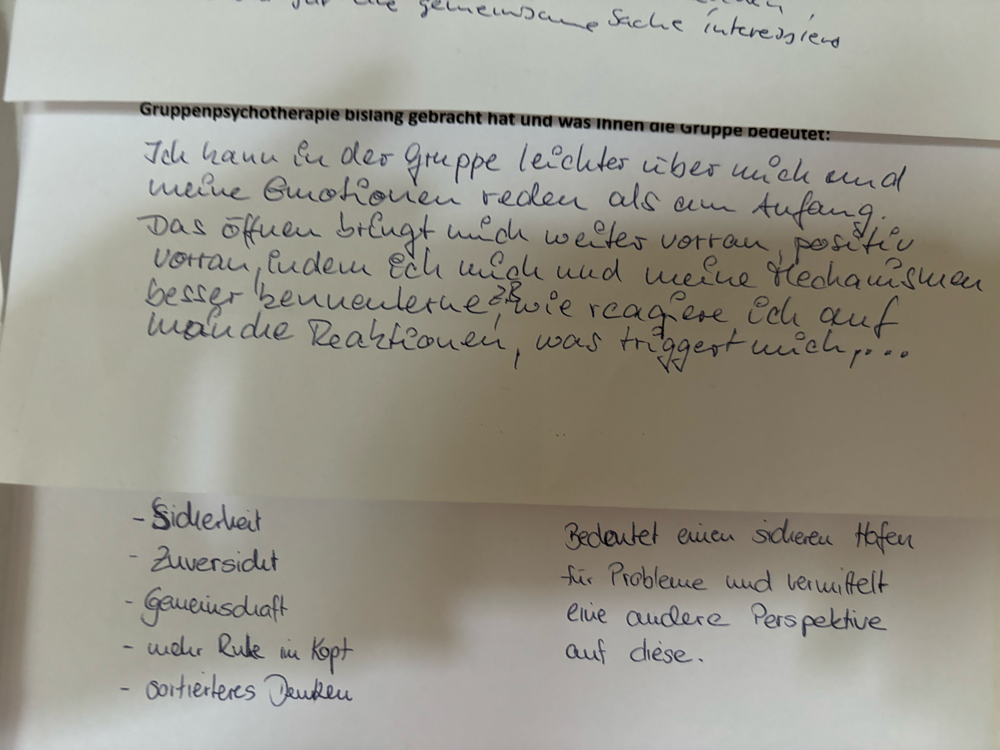 für die gemeinsame Sache interessiert
Gruppenpsychotherapie bislang gebracht hat und was Ihnen die Gruppe bedeutet:
Ich kann in der Gruppe leichter über mich und
meine Emotionen reden als am Anfang.
Das öffnen bringt mich weiter vorran, positiv
vorran, indem ich mich und meine Mechanismen
besser kennenlerne, zB wie reagiere ich auf
manche Reaktionen, was triggert mich,...
- Sicherheit
- Zuversicht
- Gemeinschaft
- mehr Ruhe im Kopf
- sortierteres Denken
Bedeutet einen sicheren Hafen
für Probleme und vermittelt
eine andere Perspektive
auf diese.